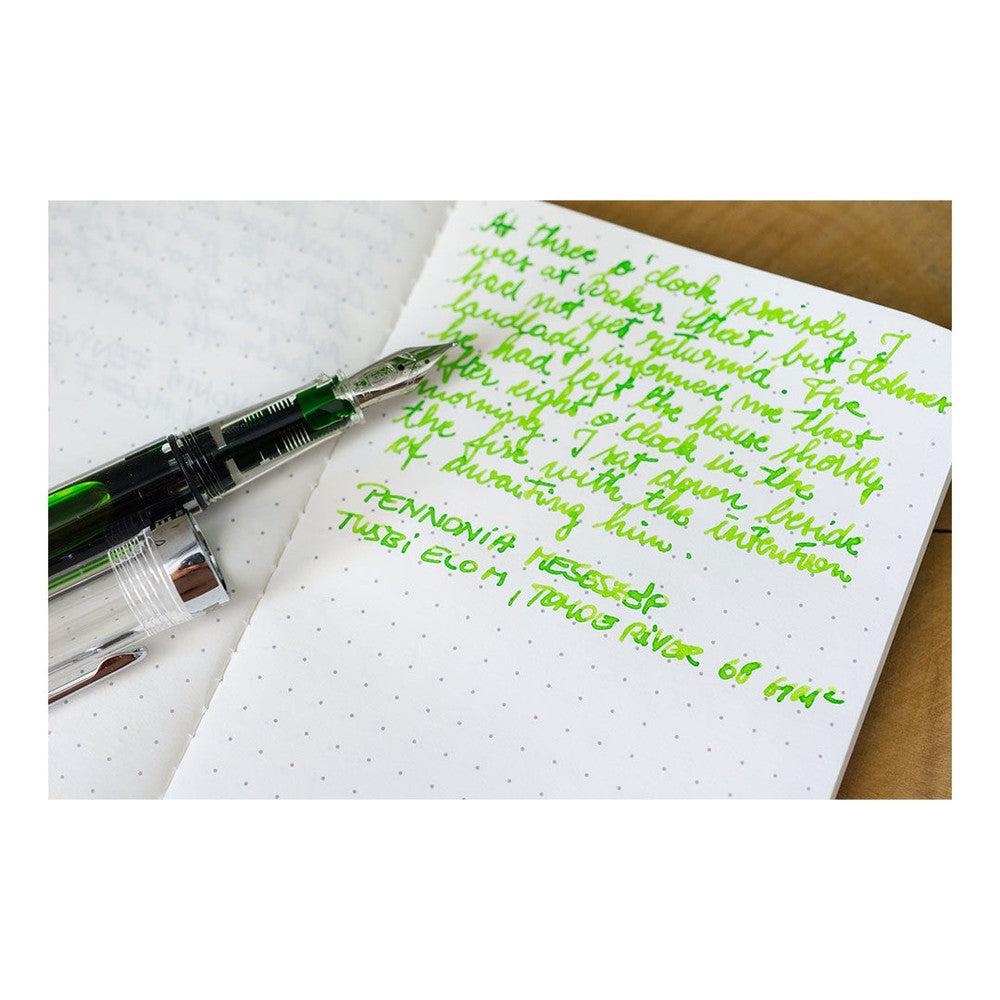 At three o'clock precisely I
was at Baker that, but Holmes
had not yet returned. The
landlady informed me that
he had left the house shortly
after eight o'clock in the
morning. I sat down beside
the fire with the intention
of awaiting him.
PENNONIA MESESZÉP
TWSBI ECO M, TOMOE RIVER 68 G/M²